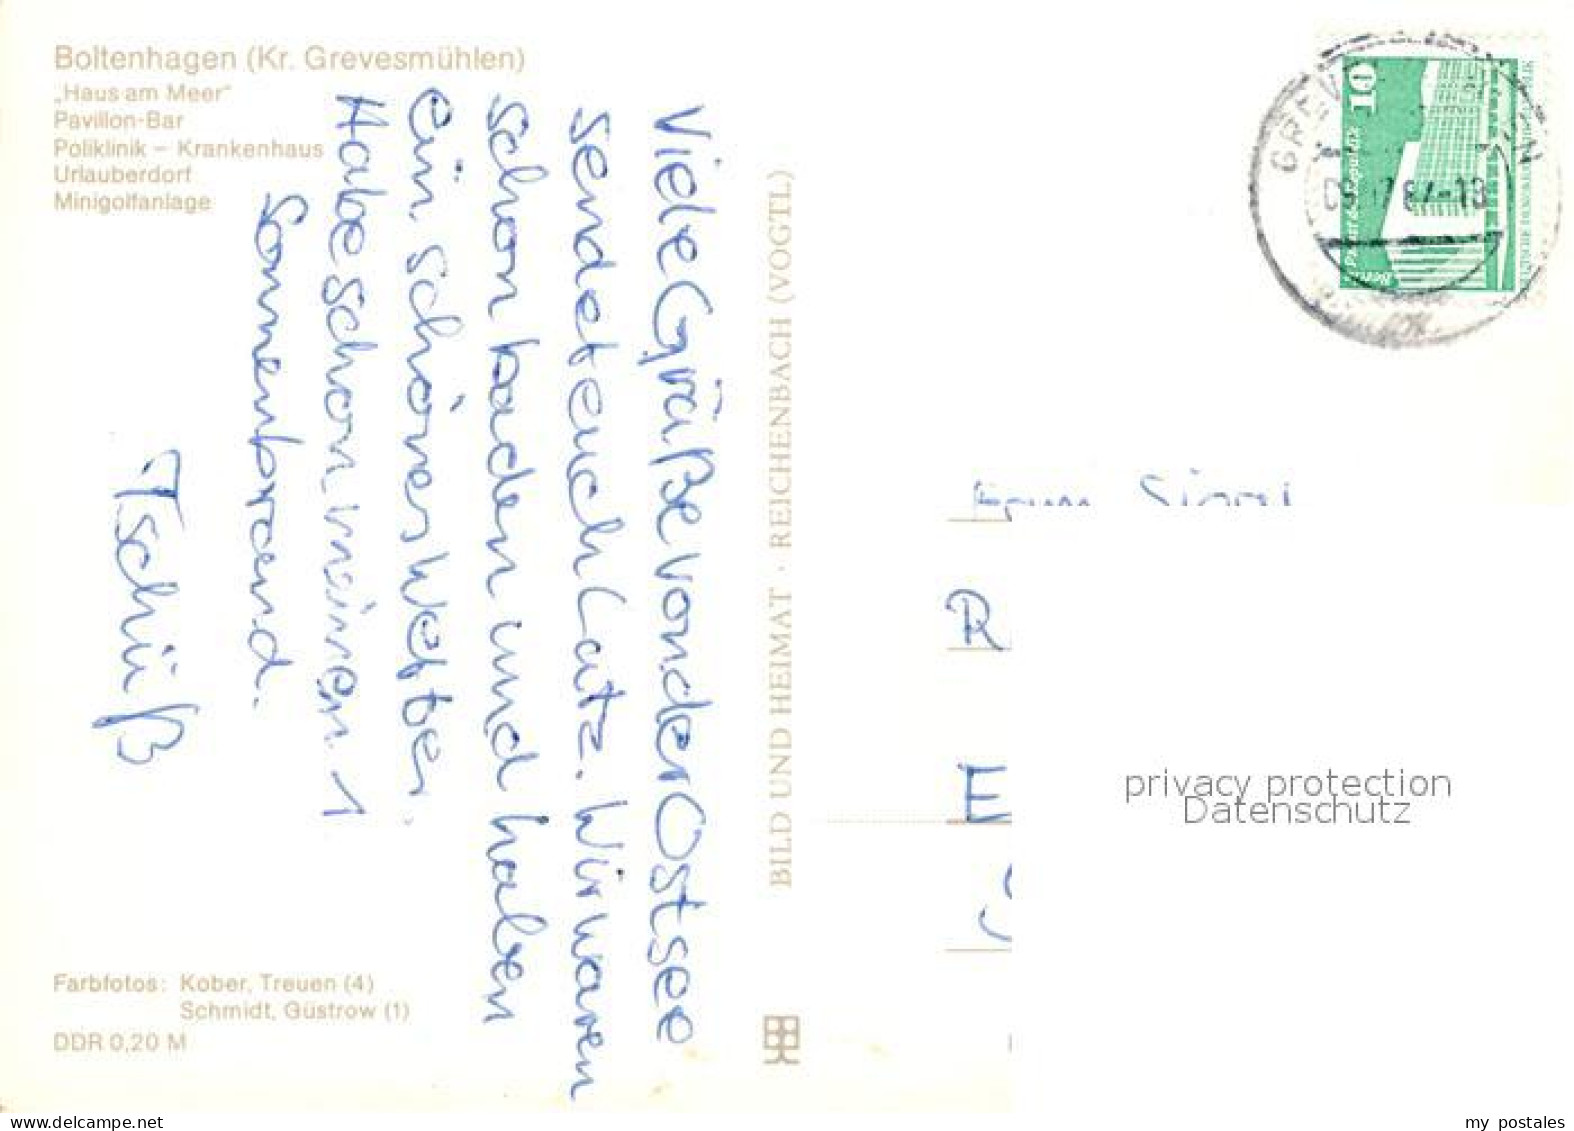 Boltenhagen (Kr. Grevesmühlen)
„Haus am Meer"
Pavillon-Bar
Poliklinik – Krankenhaus
Urlauberdorf
Minigolfanlage
Viele Grüße von der Ostsee
sendet euch Lutz. Wir waren
schon baden und haben
ein schönes Wetter.
Habe schon meinen 1
Sonnenbrand.
Tschüß
Farbfotos: Kober, Treuen (4)
Schmidt, Güstrow (1)
DDR 0,20 M
BILD UND HEIMAT · REICHENBACH (VOGTL)
10
Palast der Republik
Berlin
R
E
privacy protection
Datenschutz
www.delcampe.net
my postales